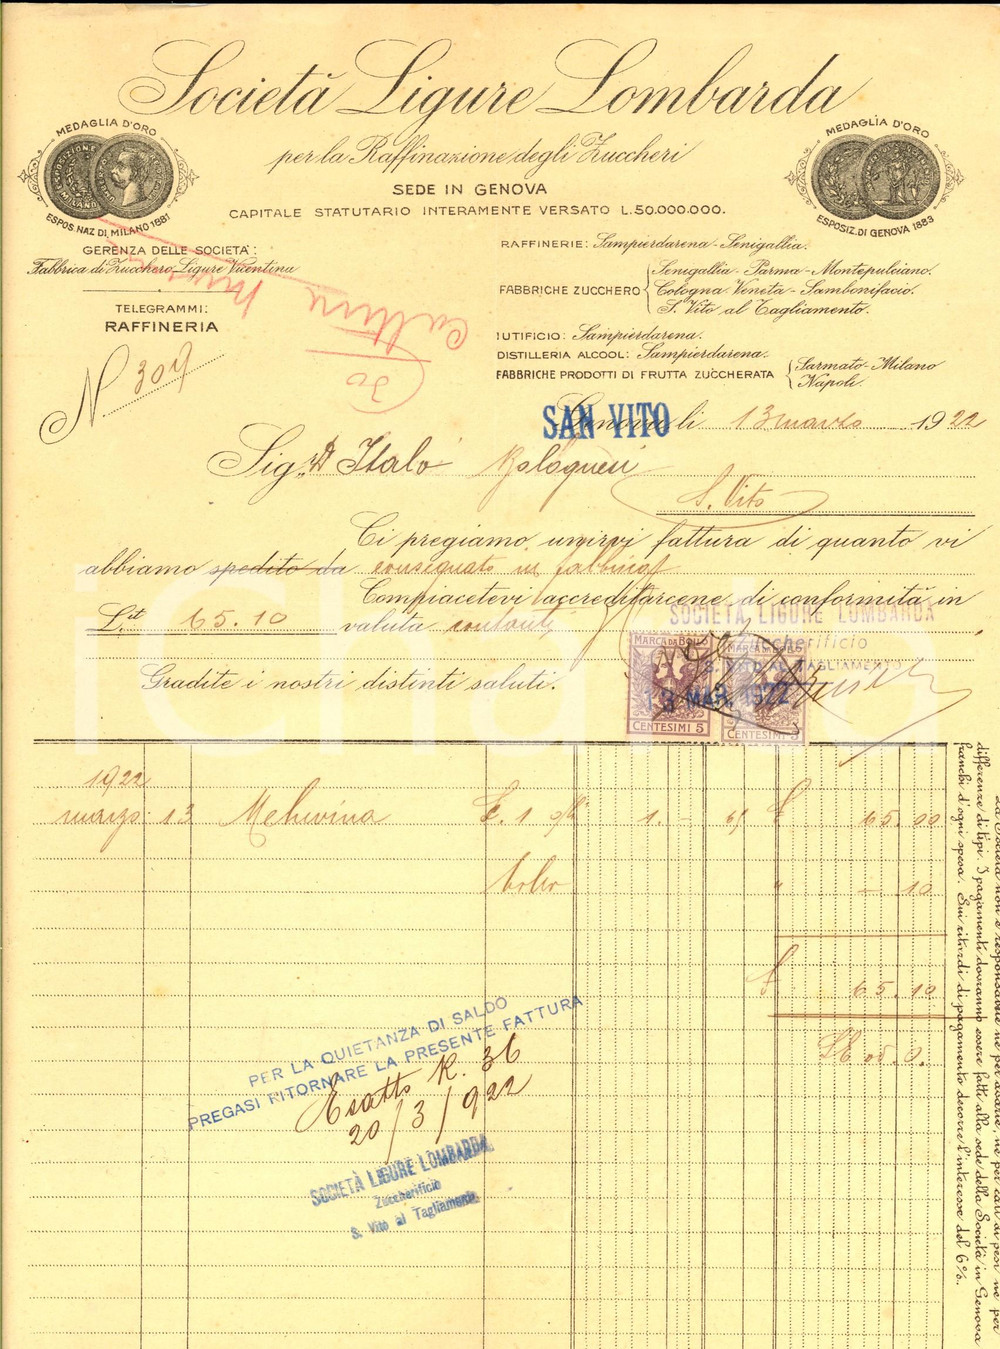 Società Ligure Lombarda
per la Raffinazione degli Zuccheri
SEDE IN GENOVA
CAPITALE STATUTARIO INTERAMENTE VERSATO L.50.000.000.
MEDAGLIA D'ORO
ESPOS. NAZ. DI MILANO 1881
MEDAGLIA D'ORO
ESPOSIZ. DI GENOVA 1883
GERENZA DELLE SOCIETA':
Fabbrica di Zucchero Ligure Vicentina
TELEGRAMMI:
RAFFINERIA
N 309
RAFFINERIE: Sampierdarena - Senigallia.
FABBRICHE ZUCCHERO
Senigallia - Parma - Montepulciano.
Cologna Veneta - Sambonifacio.
S. Vito al Tagliamento.
IUTIFICIO: Sampierdarena.
DISTILLERIA ALCOOL: Sampierdarena.
FABBRICHE PRODOTTI DI FRUTTA ZUCCHERATA
Sarmato - Milano
Napoli.
SAN VITO
Genova li 13 marzo 1922
Sig. Italo Bolognesi
S. Vito
Ci pregiamo unirvi fattura di quanto vi
abbiamo spedito da consegnato in fabbrica
Compiacetevi accreditarcene di conformità in
L.it 65.10 valuta contanti
Gradite i nostri distinti saluti.
SOCIETÀ LIGURE LOMBARDA
Zuccherificio
S. VITO AL TAGLIAMENTO
MARCA DA BOLLO
MARCA DA BOLLO
13 MAR. 1922
CENTESIMI 5
CENTESIMI 5
1922
marzo 13 1. - 65 £ 65.00
bollo " - .10
£ 65.10
PER LA QUIETANZA DI SALDO
PREGASI RITORNARE LA PRESENTE FATTURA
Esatto R. 36
20/3/922
SOCIETÀ LIGURE LOMBARDA
Zuccherificio
S. Vito al Tagliamento
La Società non è responsabile nè per avarie, nè per cali di peso nè per
differenze di tipi. I pagamenti dovranno essere fatti alla sede della Società in Genova
franchi d'ogni spesa. Sui ritardi di pagamento decorre l'interesse del 6%.